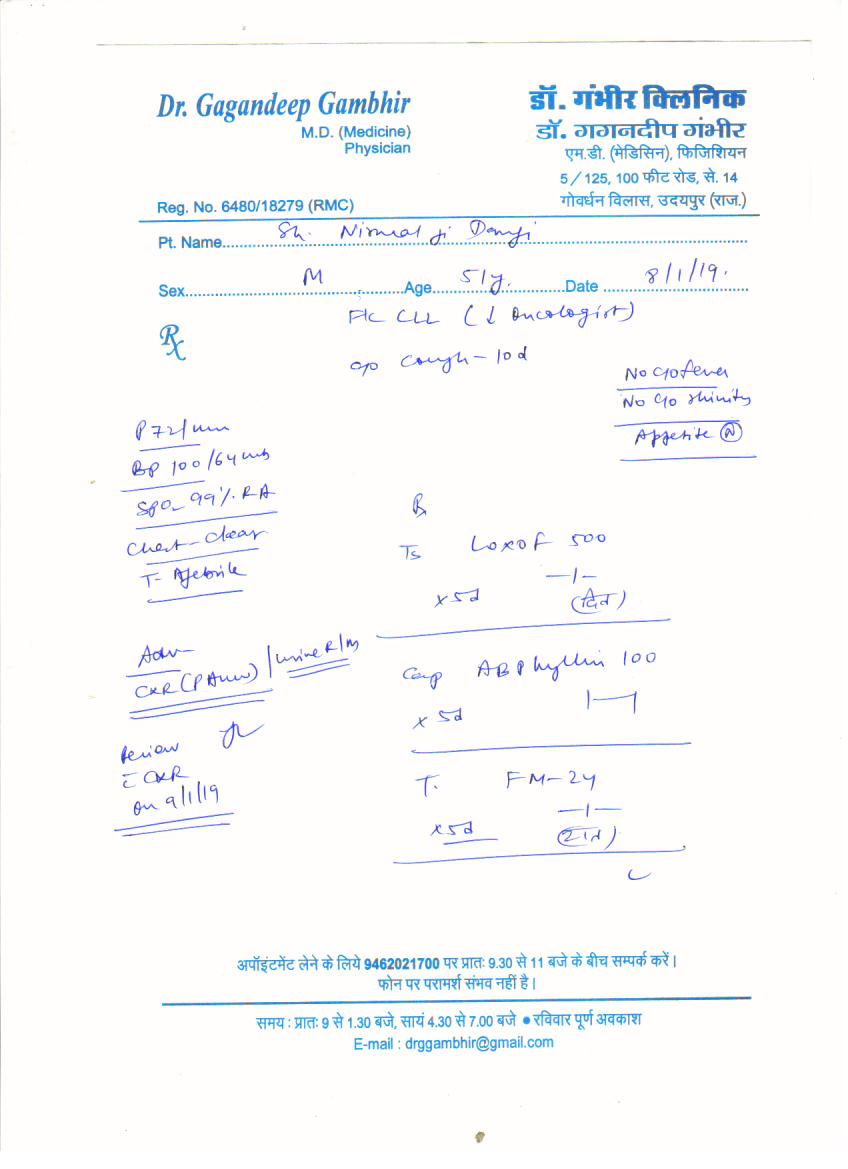 Dr. Gagandeep Gambhir
M.D. (Medicine)
Physician
Reg. No. 6480/18279 (RMC)
डॉ. गंभीर क्लिनिक
डॉ. गगनदीप गंभीर
एम.डी. (मेडिसिन), फिजिशियन
5/125, 100 फीट रोड, से. 14
गोवर्धन विलास, उदयपुर (राज.)
Pt. Name Sh. Nirmal ji Dangi
Sex M Age 51y. Date 8/1/19.
Rx
CLL (↓ Oncologist)
c/o Cough - 10d
No c/o fever
No c/o
Appetite (N)
P 72/min
BP 100/64
SPO2 99% RA
Chest - Clear
T- Afebrile
Adv
CXR (PA view) / Urine R/M
Review
c̄ CXR
on 9/1/19
Rx
LOXOF 500
—1—
x 5d (दिन)
Cap ABPhyllin 100
1—1
x 5d
T. FM-24
—1—
x 5d (रात)
अपॉइंटमेंट लेने के लिये 9462021700 पर प्रातः 9.30 से 11 बजे के बीच सम्पर्क करें।
फोन पर परामर्श संभव नहीं है।
समय : प्रातः 9 से 1.30 बजे, सायं 4.30 से 7.00 बजे ● रविवार पूर्ण अवकाश
E-mail : drggambhir@gmail.com